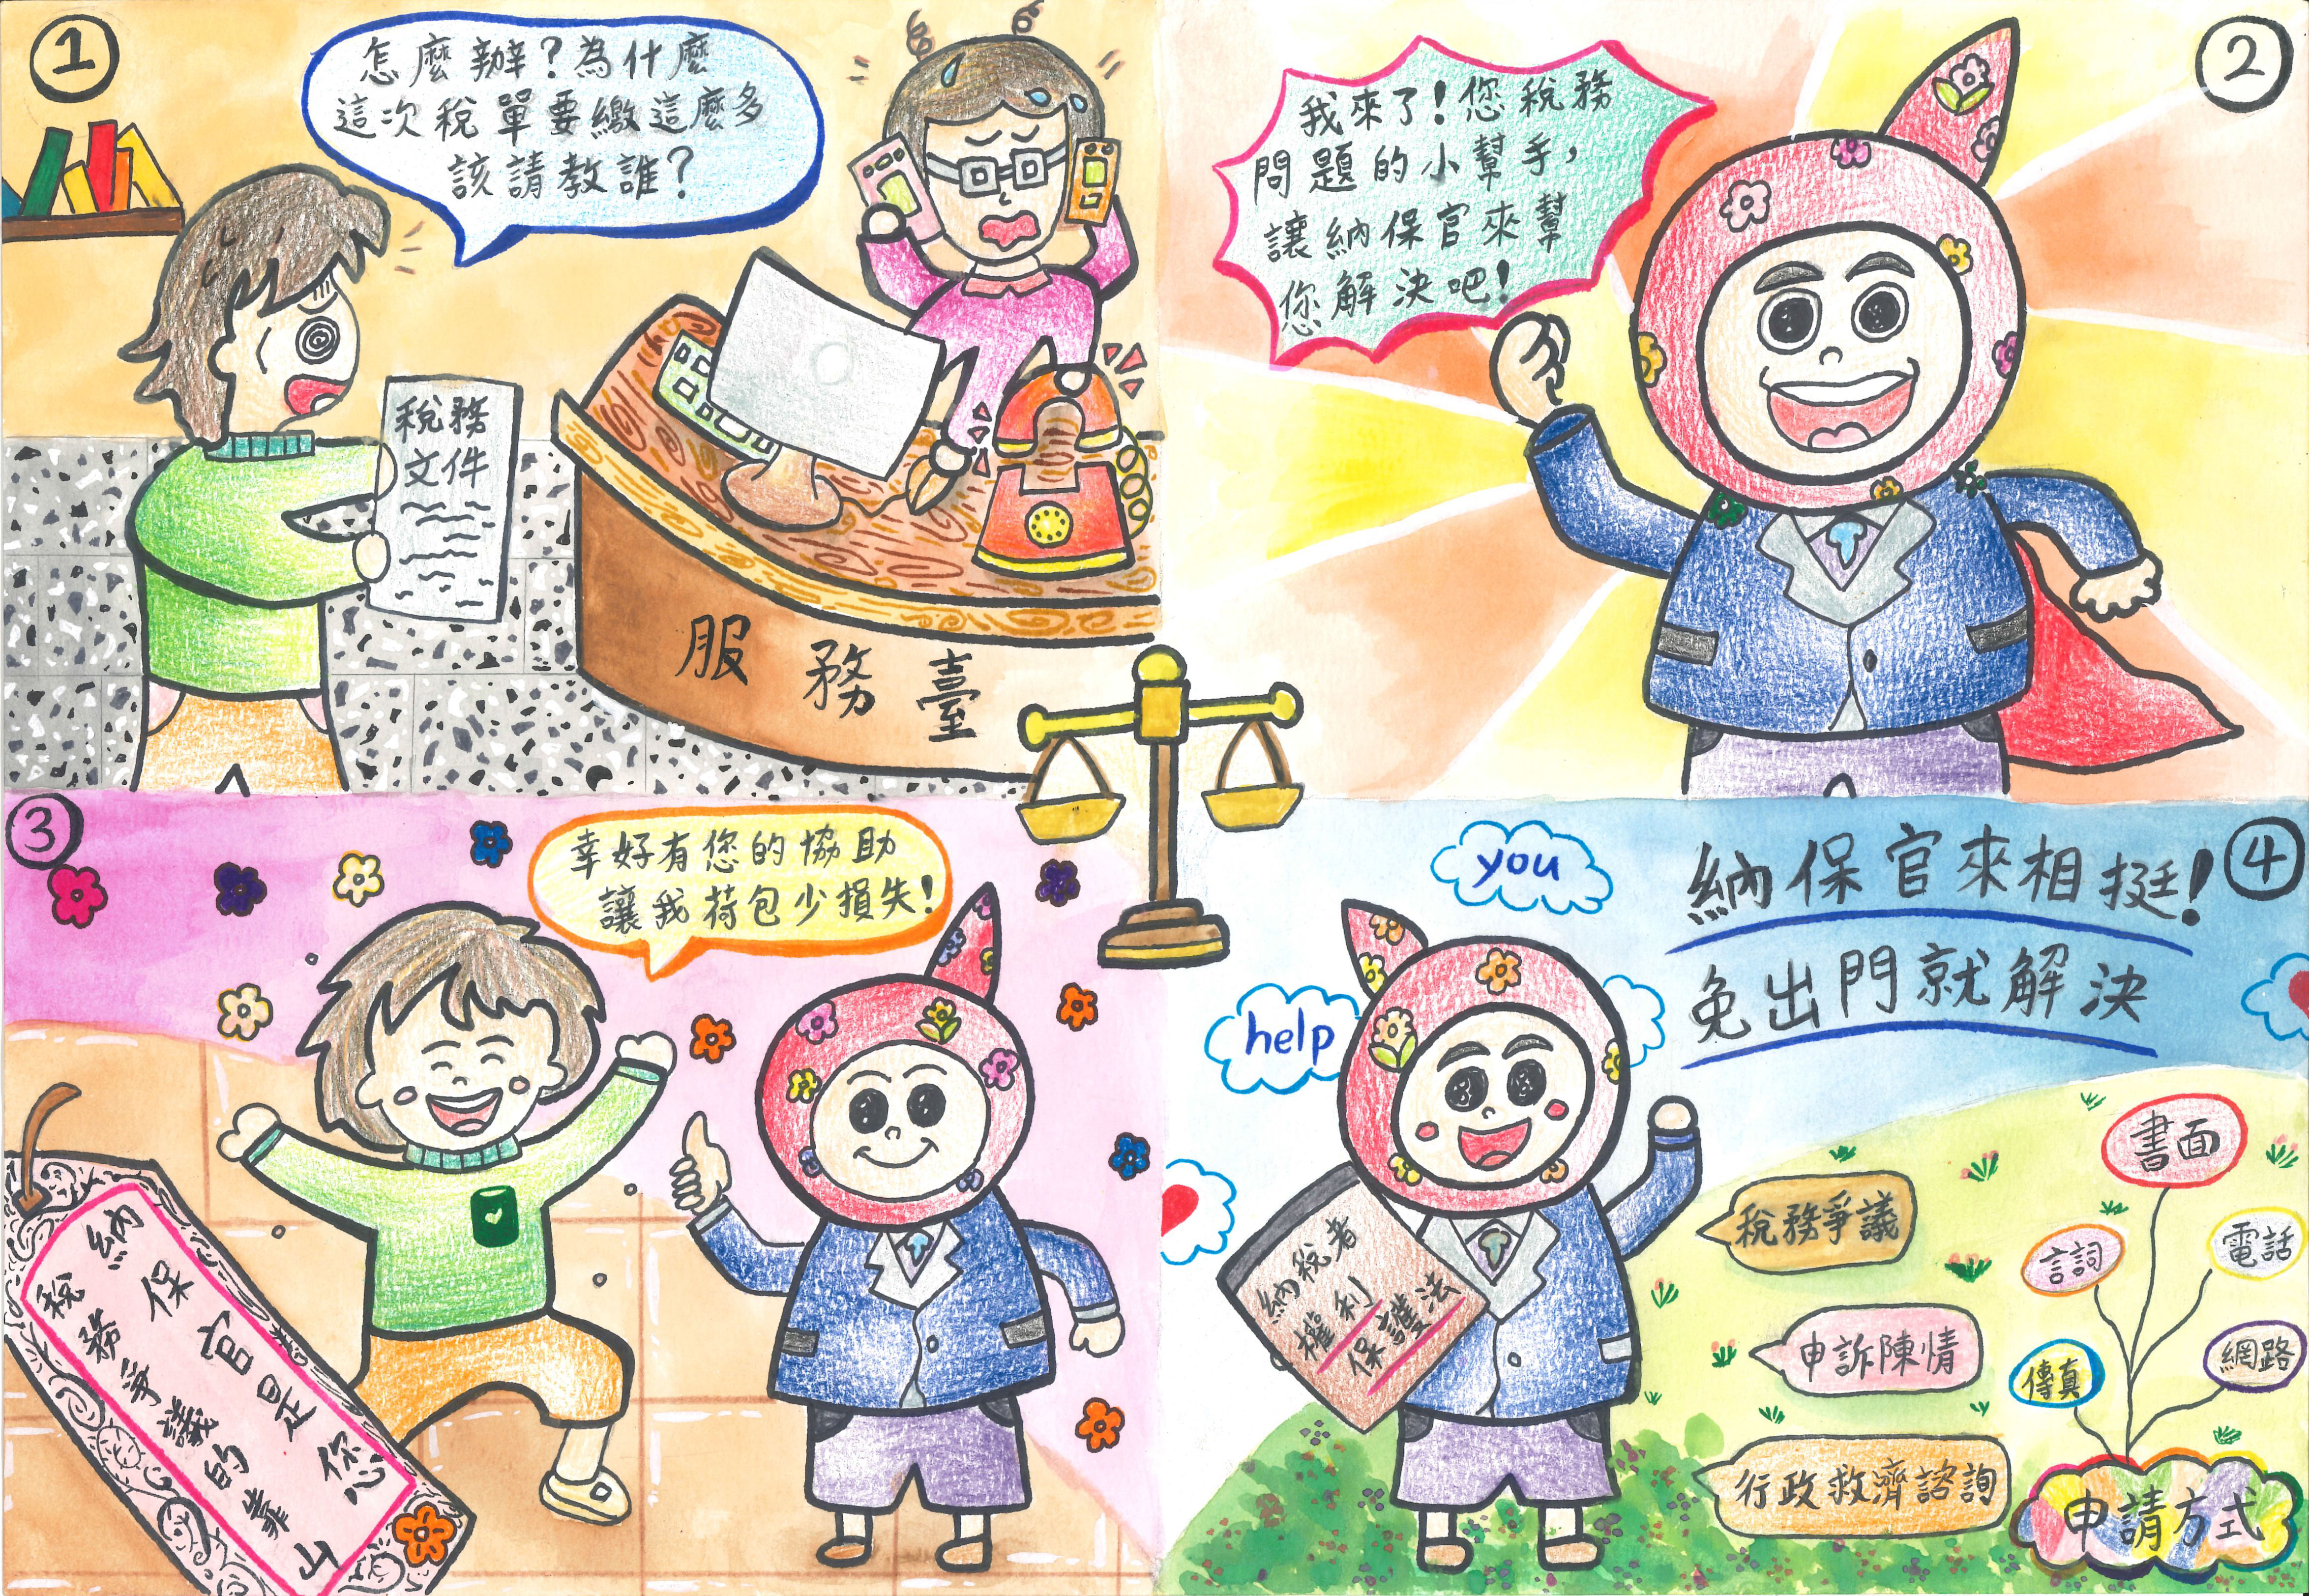 1
怎麼辦?為什麼
這次稅單要繳這麼多
該請教誰?
稅務
文件
服務臺
2
我來了!您稅務
問題的小幫手,
讓納保官來幫
您解決吧!
3
幸好有您的協助
讓我荷包少損失!
納保官是您
稅務爭議的靠山
4
you
help
納保官來相挺!
免出門就解決
納稅者
權利
保護法
稅務爭議
申訴陳情
行政救濟諮詢
書面
言詞
電話
傳真
網路
申請方式